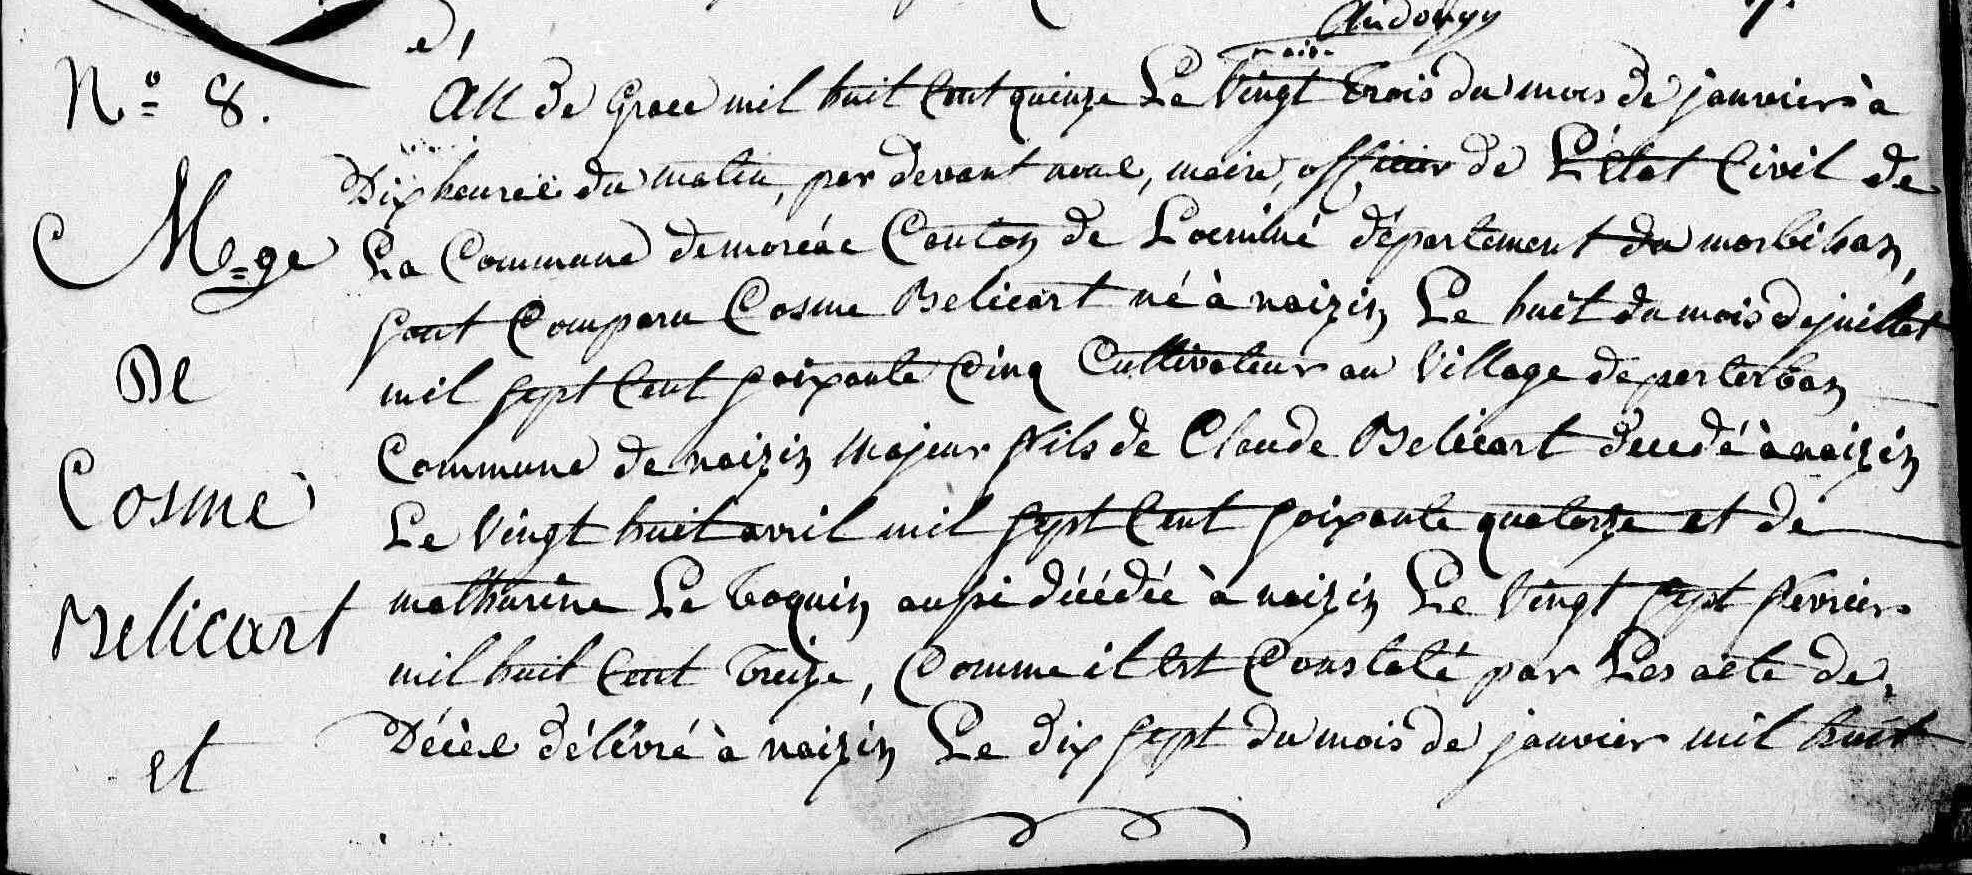 Audouyy
maire
N° 8.
An de Grace mil huit Cent quinze Le Vingt trois du mois de janvier à
Dix heures du matin, par devant nous, maire, officier de L'état Civil de
M=ge
La Commune de moréac Canton de Locminé département du morbihan,
sont Comparu Cosme Belicart né à naizin Le huit du mois de juillet
De
mil sept Cent soixante Cinq Cultivateur au Village de porterban
Commune de naizin Majeur fils de Claude Belicart decedé à naizin
Cosme
Le Vingt huit avril mil sept Cent soixante quatorze et de
Belicart
mathurine Le toquin aussi décédée à naizin Le Vingt sept fevrier
mil huit Cent treize, Comme il Est Constaté par Les acte de
et
Décès délivré à naizin Le dix sept du mois de janvier mil huit